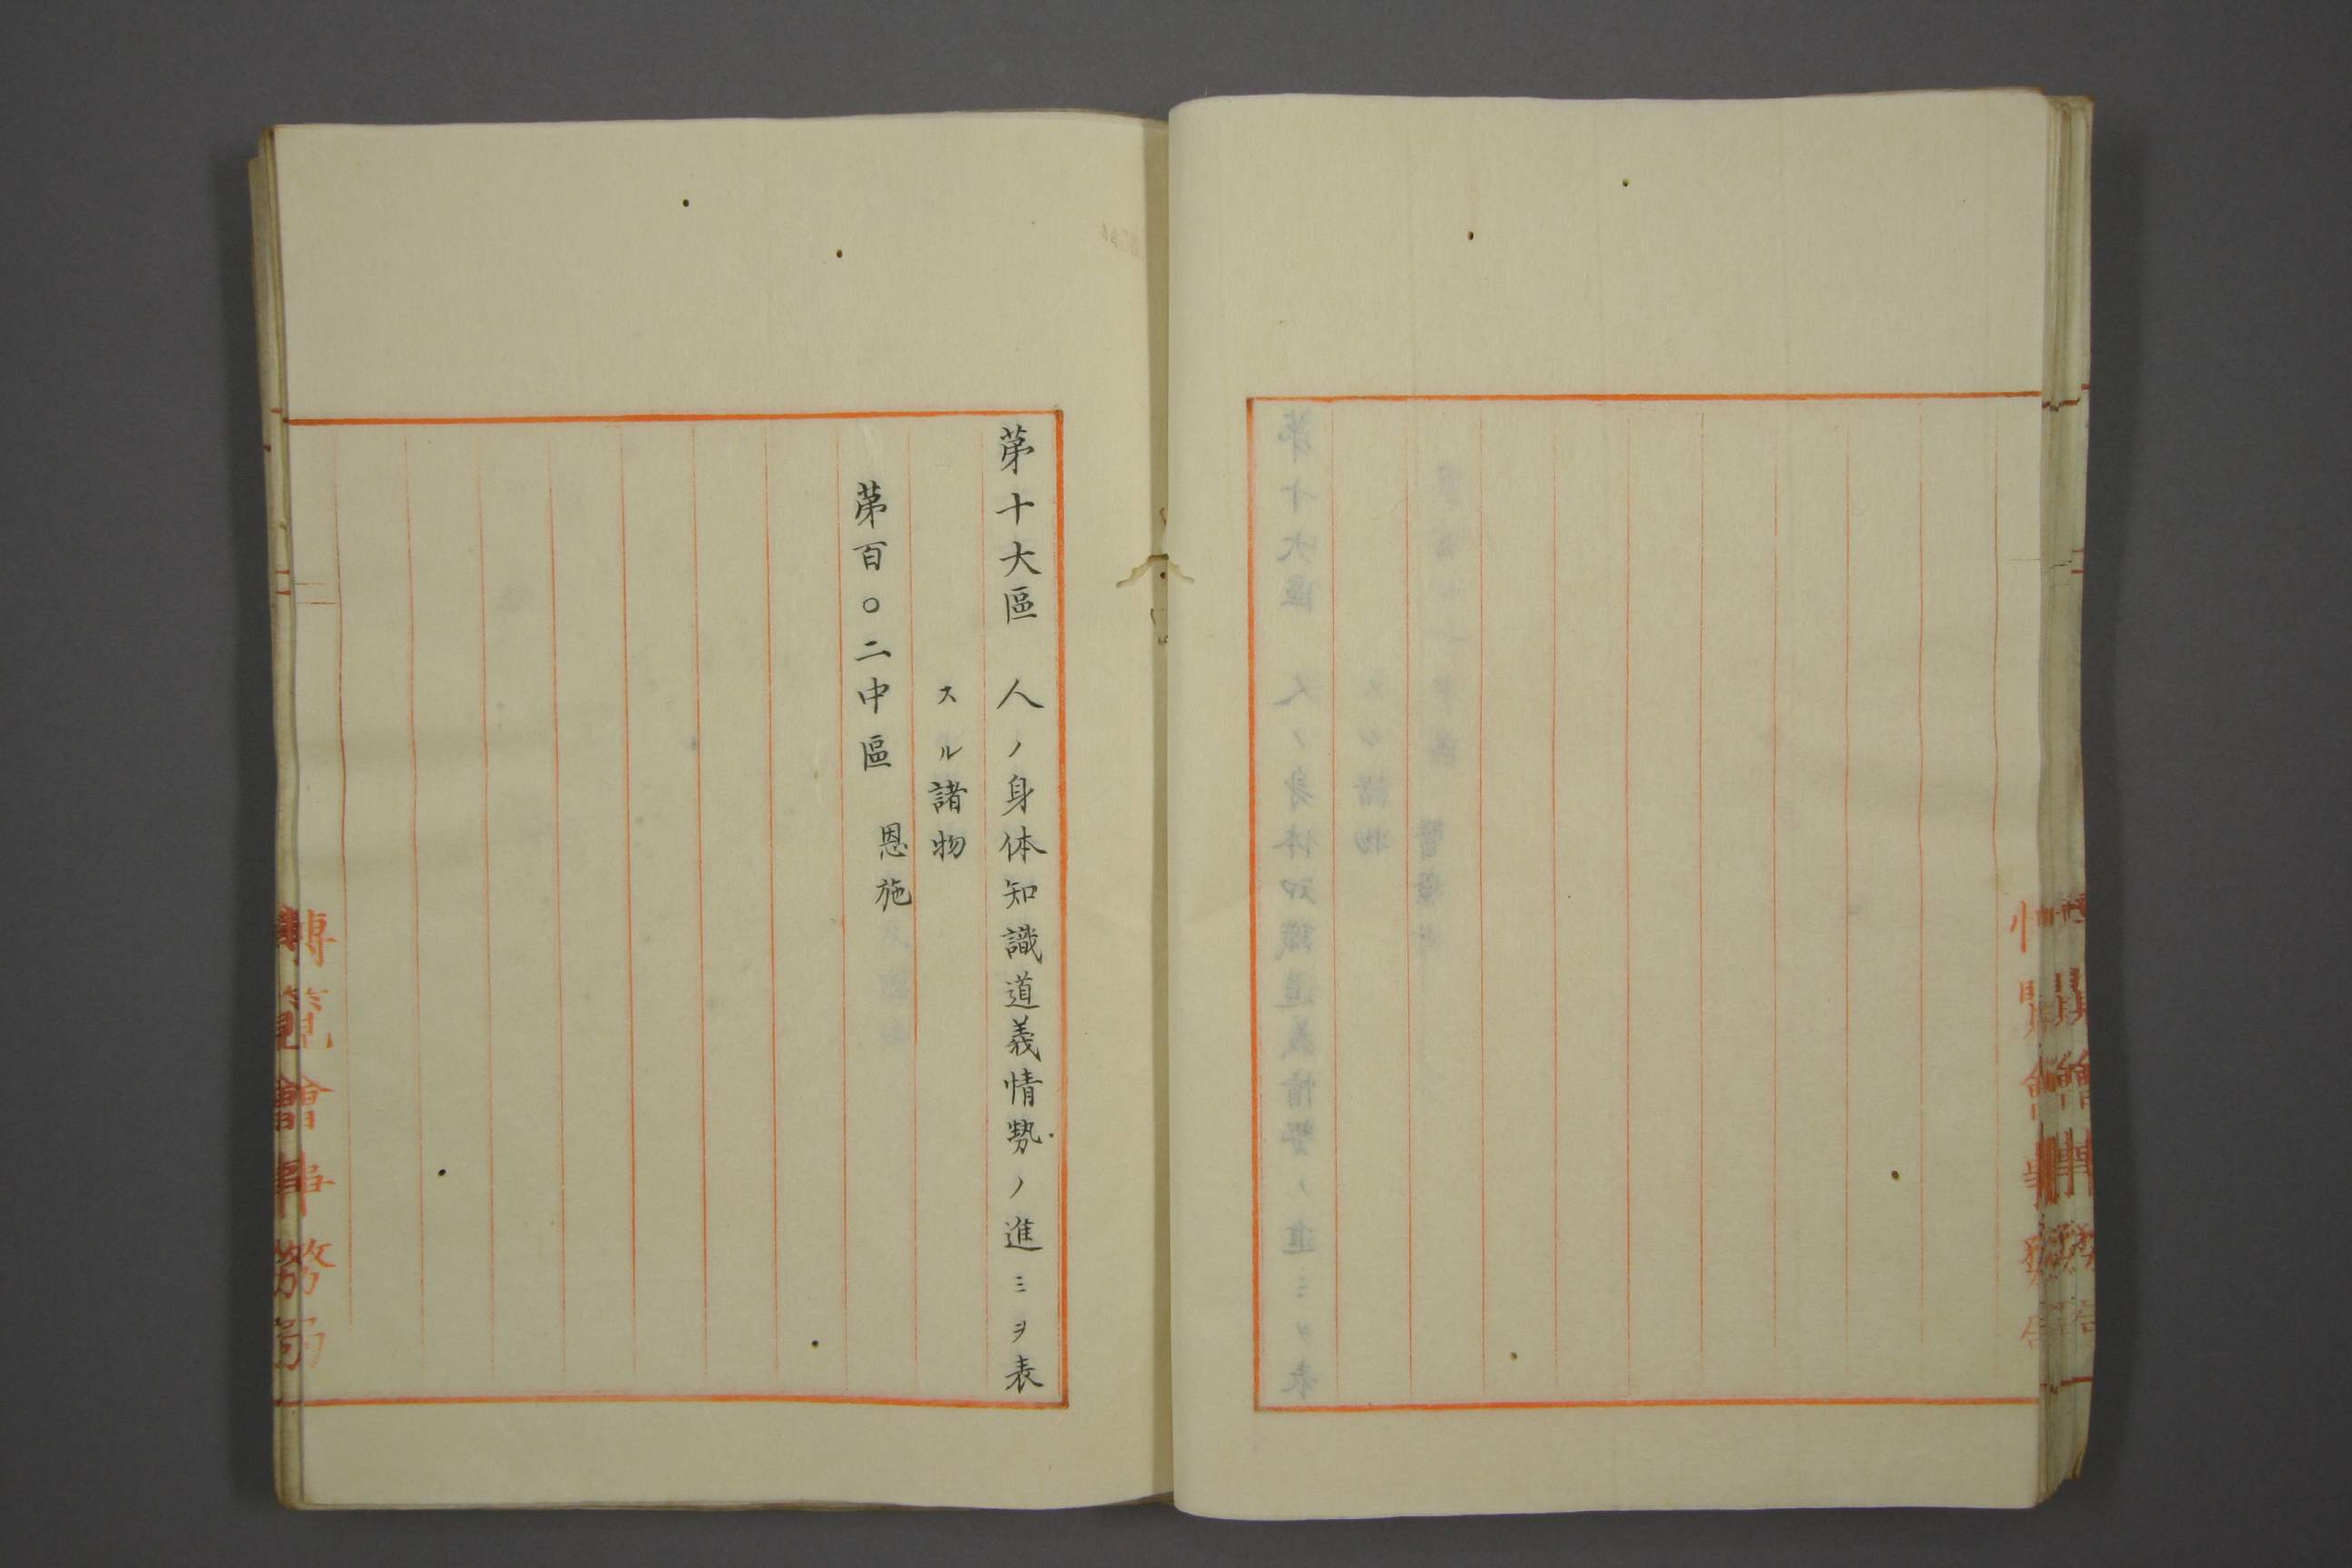 第十大區　人ノ身体知識道義情勢ノ進ミヲ表
スル諸物
第百〇二中區　恩施
博覧會事務局